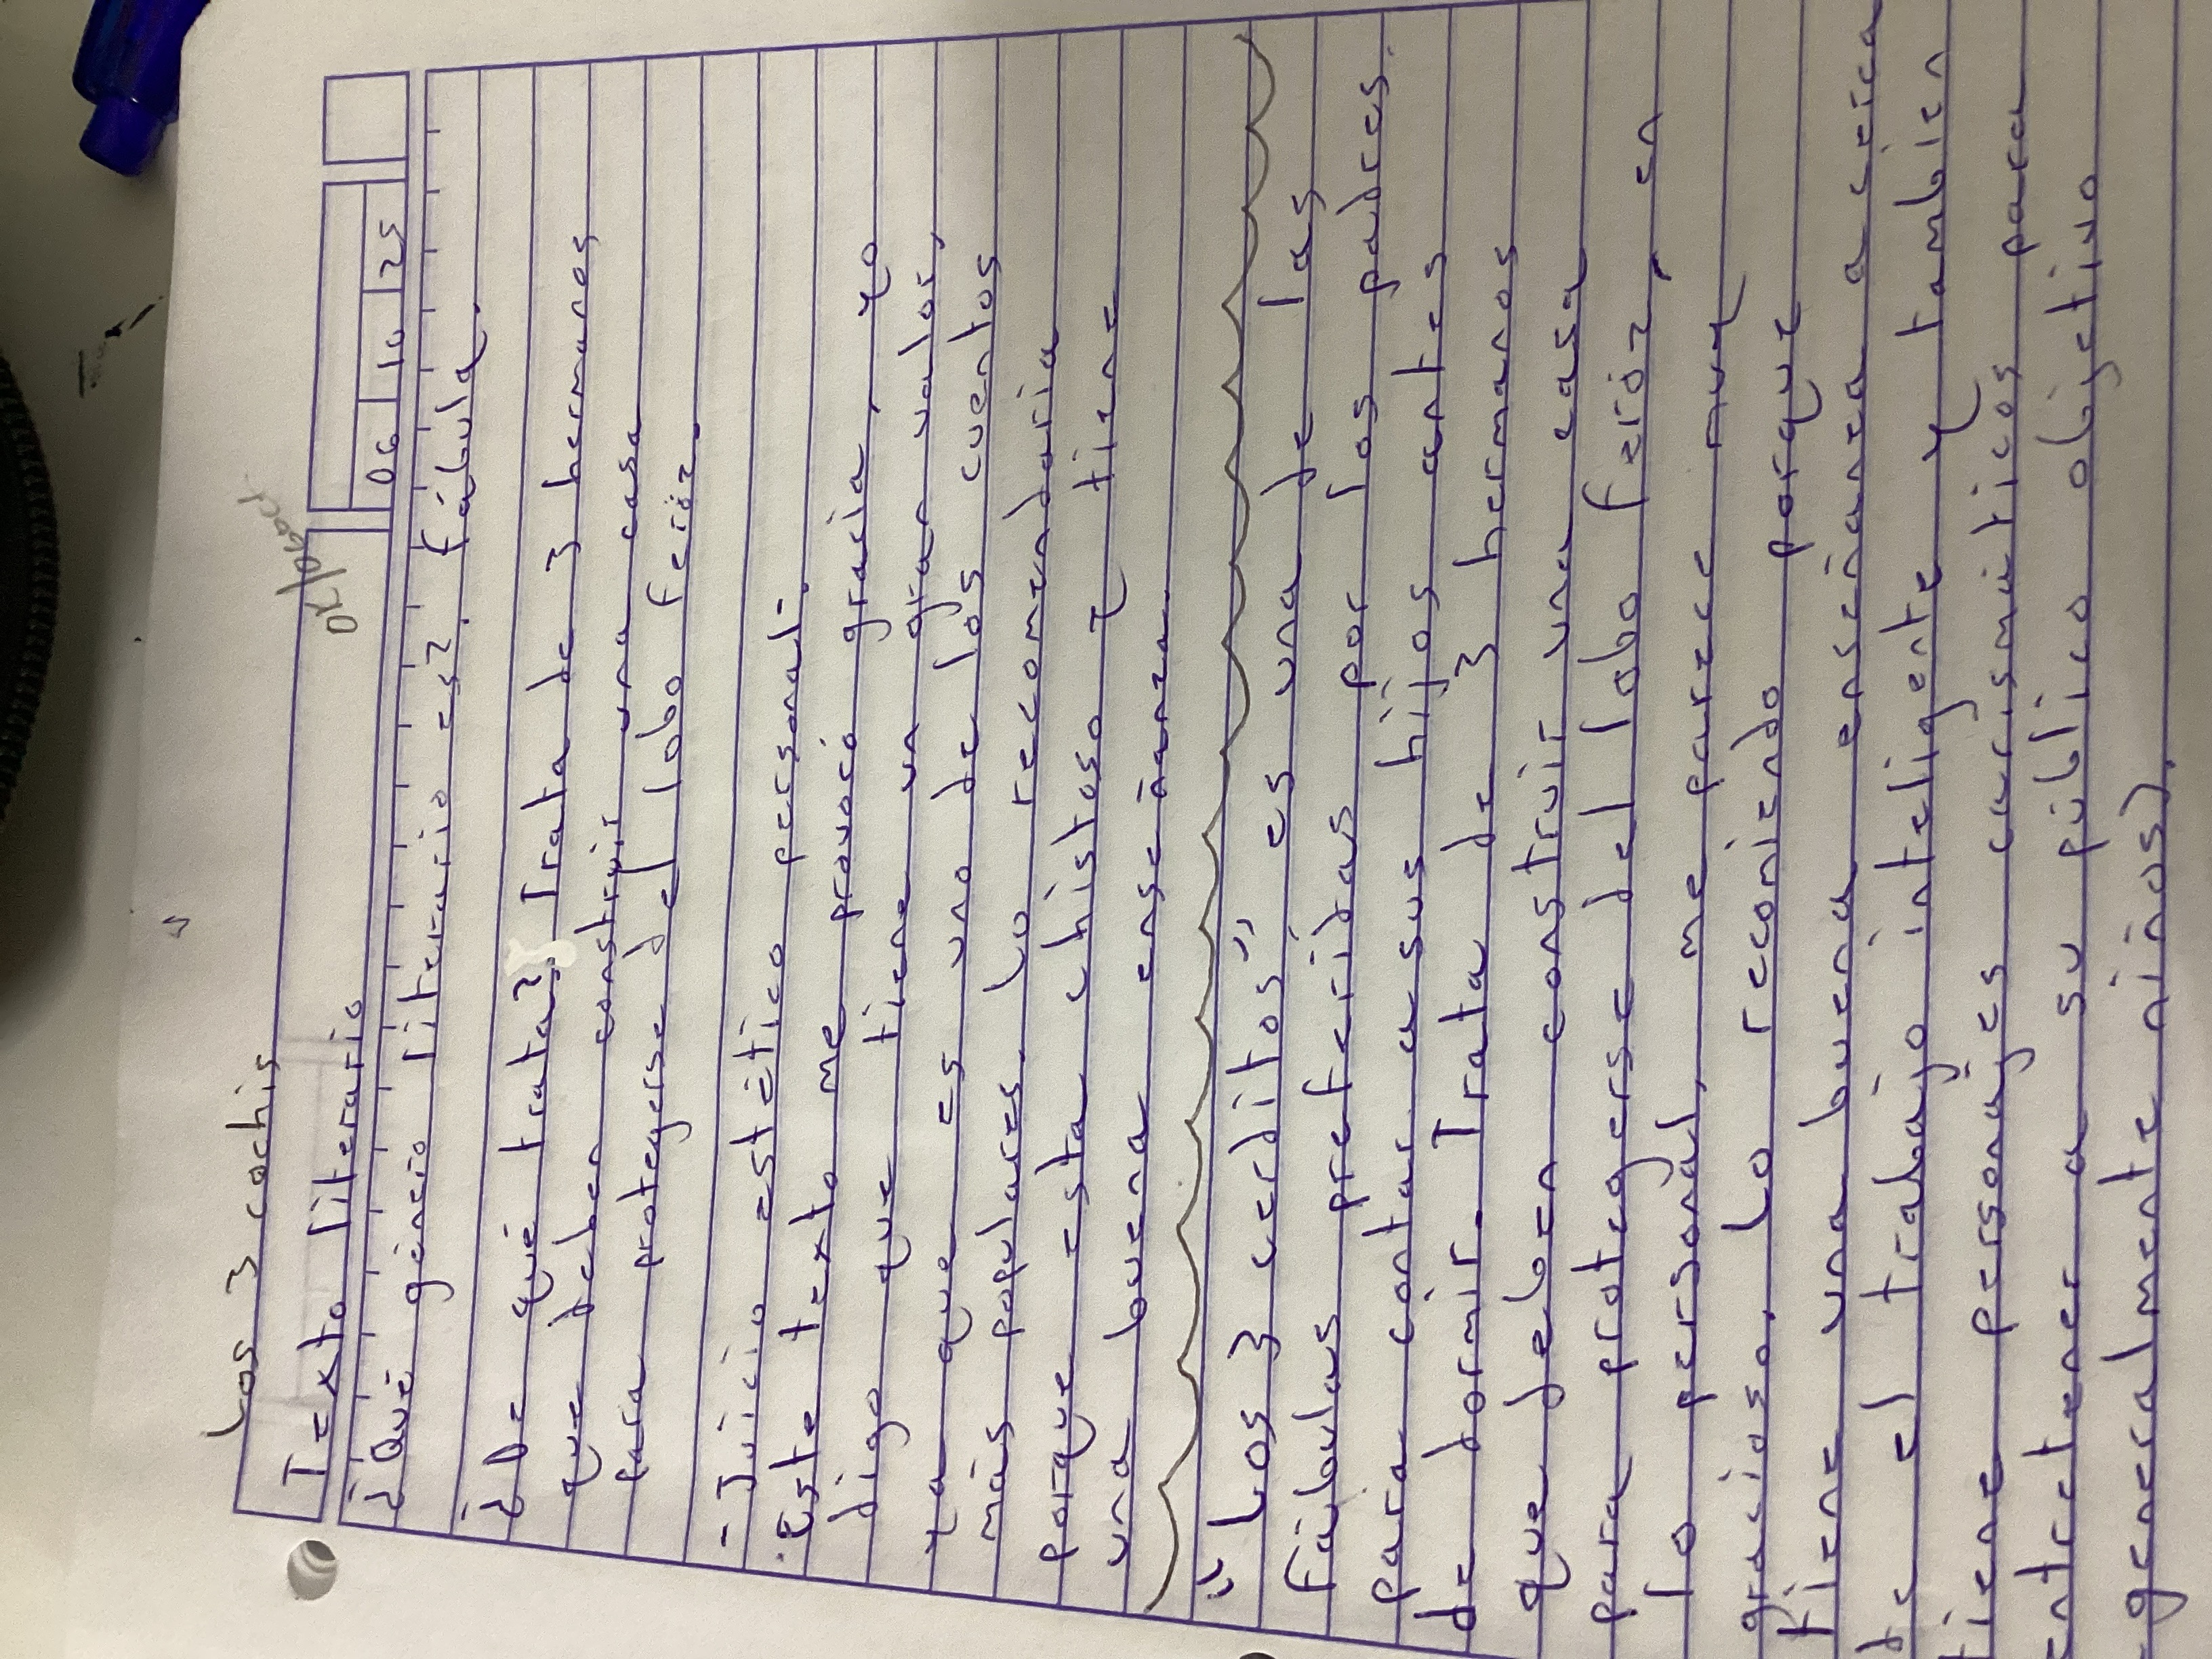 Los 3 cochis
Texto literario
06 10 25
¿Qué género literario es? Fábula.
¿De qué trata? Trata de 3 hermanos
que deben construi una casa
para protegerse del lobo feroz.
- Juicio estético personal-.
Este texto me provocó gracia, yo
digo que tiene un gran valor,
ya que es uno de los cuentos
más populares. Lo recomendaria
porque esta chistoso y tiene
una buena enseñanza.
"Los 3 cerditos" es una de las
Fábulas preferidas por los padres.
para contar a sus hijos antes
de dormir. Trata de 3 hermanos
que deben construir una casa
para protegerse del lobo feróz, en
lo personal, me parece muy
gracioso. Lo recomiendo porque
tiene una buena enseñanza a cerca
de el trabajo inteligente y tambien
tiene personajes carismáticos para
entretener a su público objetivo
generalmente niños).